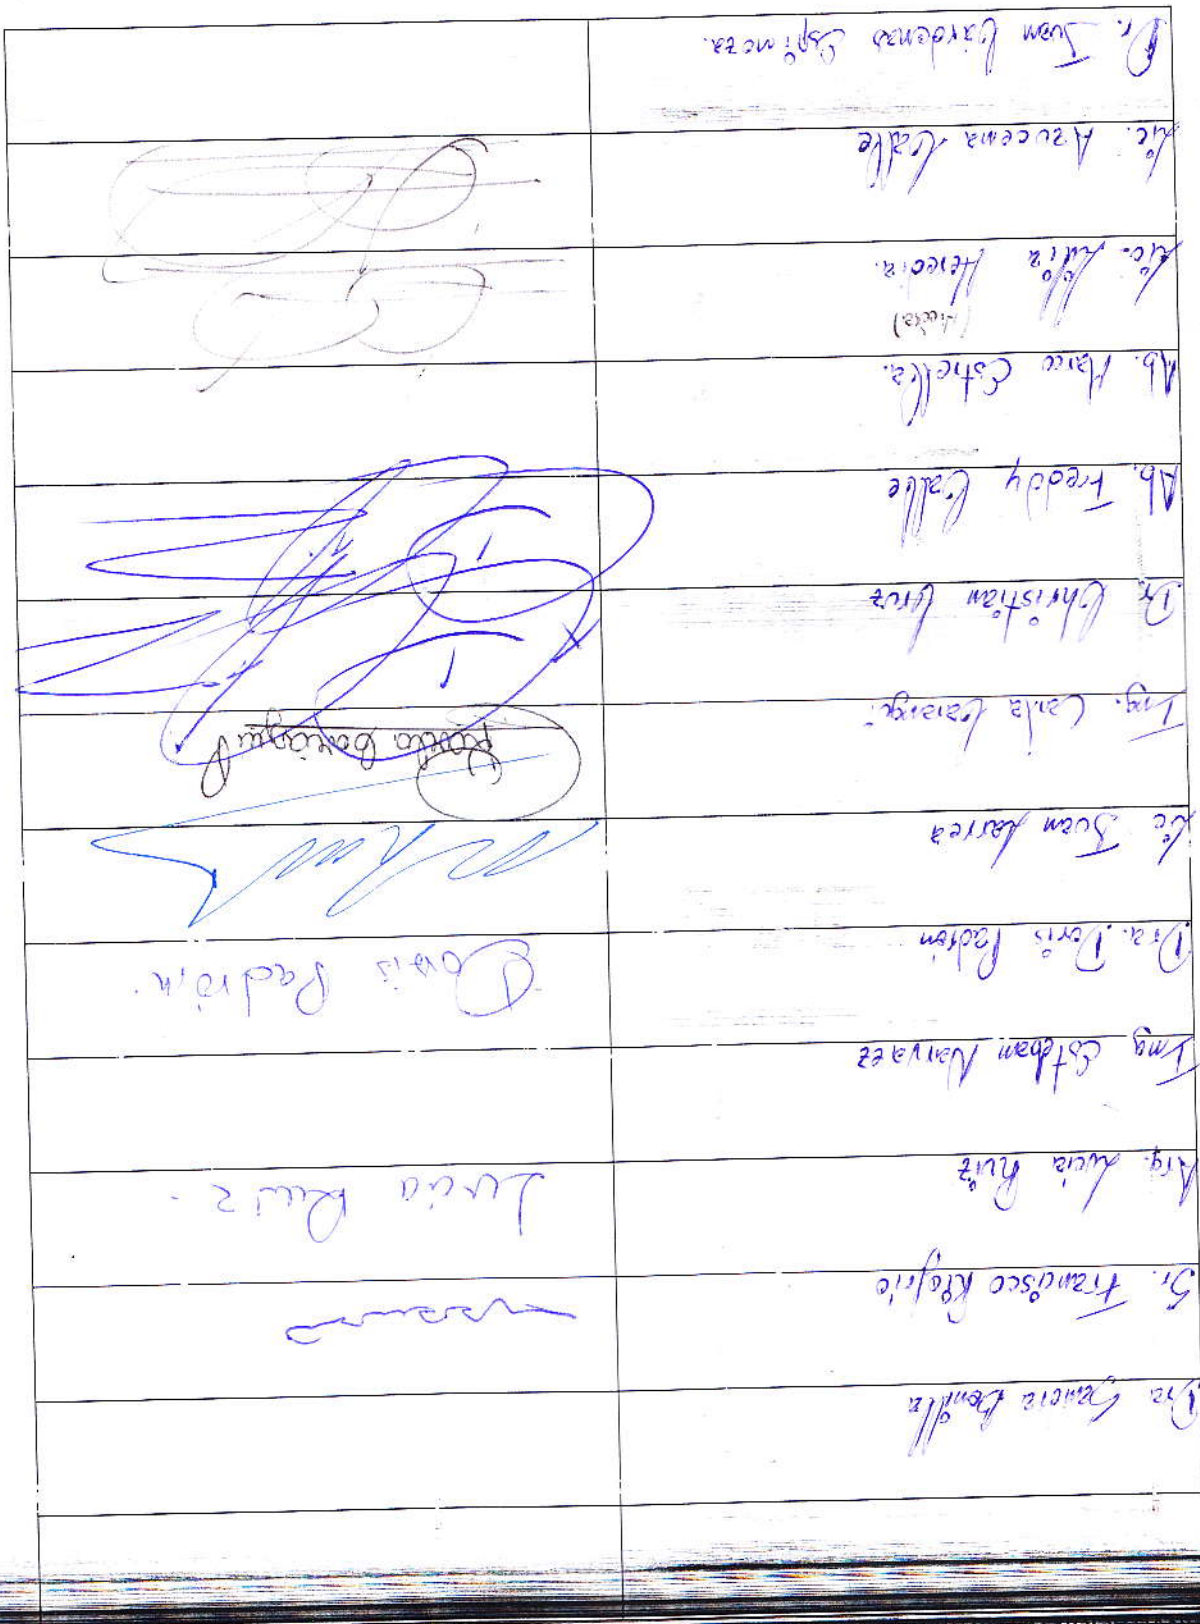 Dra Bonilla
Sr. Francisco Riofrio
Arq. Lucia Ruiz Lucia Ruiz.
Ing Esteban Narvaez
Dra. Doris Padrón Doris Padrón.
Lic Juan Larrea
Ing. Carla
Dr. Christian Cruz
Ab. Freddy Calle
Ab. Marco Estrella.
Lic. Lilia Heredia.
Lic. Azucena Calle
Dr. Juan Cárdenas Espinoza.